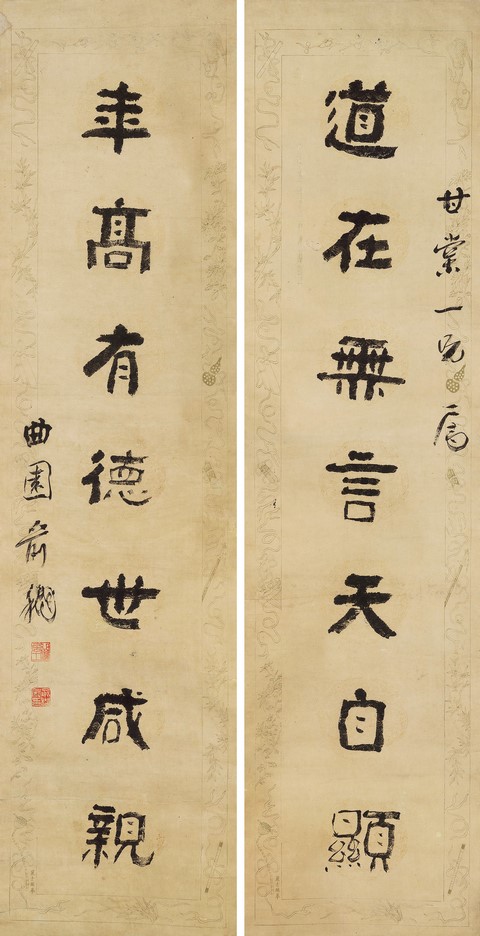 道在無言天自顯
甘棠一兄屬
年高有德世咸親
曲園俞樾